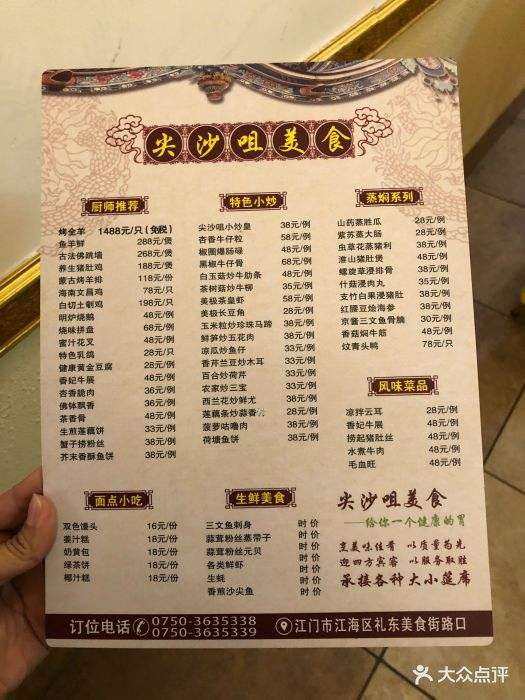 尖沙咀美食
厨师推荐
烤全羊 1488元/只(免税)
鱼羊鲜 288元/煲
古法佛跳墙 268元/煲
养生猪肚鸡 188元/煲
蒙古烤羊排 118元/份
海南文昌鸡 78元/只
白切土窑鸡 198元/只
明炉烧鹅 48元/例
烧味拼盘 68元/例
蜜汁花叉 48元/例
特色乳鸽 28元/只
健康黄金豆腐 28元/例
香妃牛展 48元/例
杏香脆肉 36元/例
佛钵飘香 36元/例
茶香骨 48元/例
生煎莲藕饼 33元/例
蟹子捞粉丝 38元/例
芥末香酥鱼饼 38元/例
特色小炒
尖沙咀小炒皇 38元/例
杏香牛仔粒 58元/例
椒圈爆肠碌 48元/例
黑椒牛仔骨 68元/例
白玉菇炒牛肋条 48元/例
茶树菇炒牛柳 35元/例
美极茶皇虾 58元/例
美极长豆角 28元/例
玉米粒炒珍珠马蹄 38元/例
鲜笋炒五花肉 38元/例
凉瓜炒鱼仔 33元/例
香芹兰豆炒木耳 33元/例
百合炒荷芹 33元/例
农家炒三宝 33元/例
西兰花炒鲜尤 38元/例
莲藕条炒蒜香骨 48元/例
菠萝咕噜肉 38元/例
荷塘鱼饼 38元/例
蒸焖系列
山药蒸胜瓜 28元/例
紫苏蒸大肠 28元/例
虫草花蒸猪利 38元/例
淮山猪肚煲 48元/例
螺旋草浸排骨 38元/例
什菇浸肉丸 35元/例
支竹白果浸猪肚 38元/例
红腰豆烩海参 38元/例
京酱三文鱼骨腩 30元/例
香菇焖牛筋 48元/例
炆青头鸭 78元/只
风味菜品
凉拌云耳 28元/例
香妃牛展 48元/例
捞起猪肚丝 48元/例
水煮牛肉 48元/例
毛血旺 48元/例
面点小吃
双色馒头 16元/份
姜汁糕 18元/份
奶黄包 18元/份
绿茶饼 18元/份
椰汁糕 18元/份
生鲜美食
三文鱼刺身 时价
蒜茸粉丝蒸带子 时价
蒜茸粉丝元贝 时价
各类鲜虾 时价
生蚝 时价
香煎沙尖鱼 时价
尖沙咀美食
——给你一个健康的胃
烹美味佳肴 以质量为先
迎四方宾客 以服务取胜
承接各种大小筵席
订位电话 0750-3635338
0750-3635339
江门市江海区礼东美食街路口
大众点评